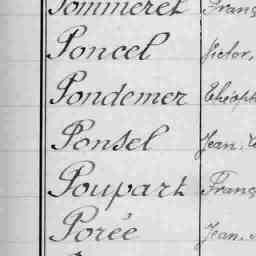 Pommeret Franç
Poncel Victor,
Pondemer Théoph
Ponsel Jean
Poupart Franç
Porée Jean